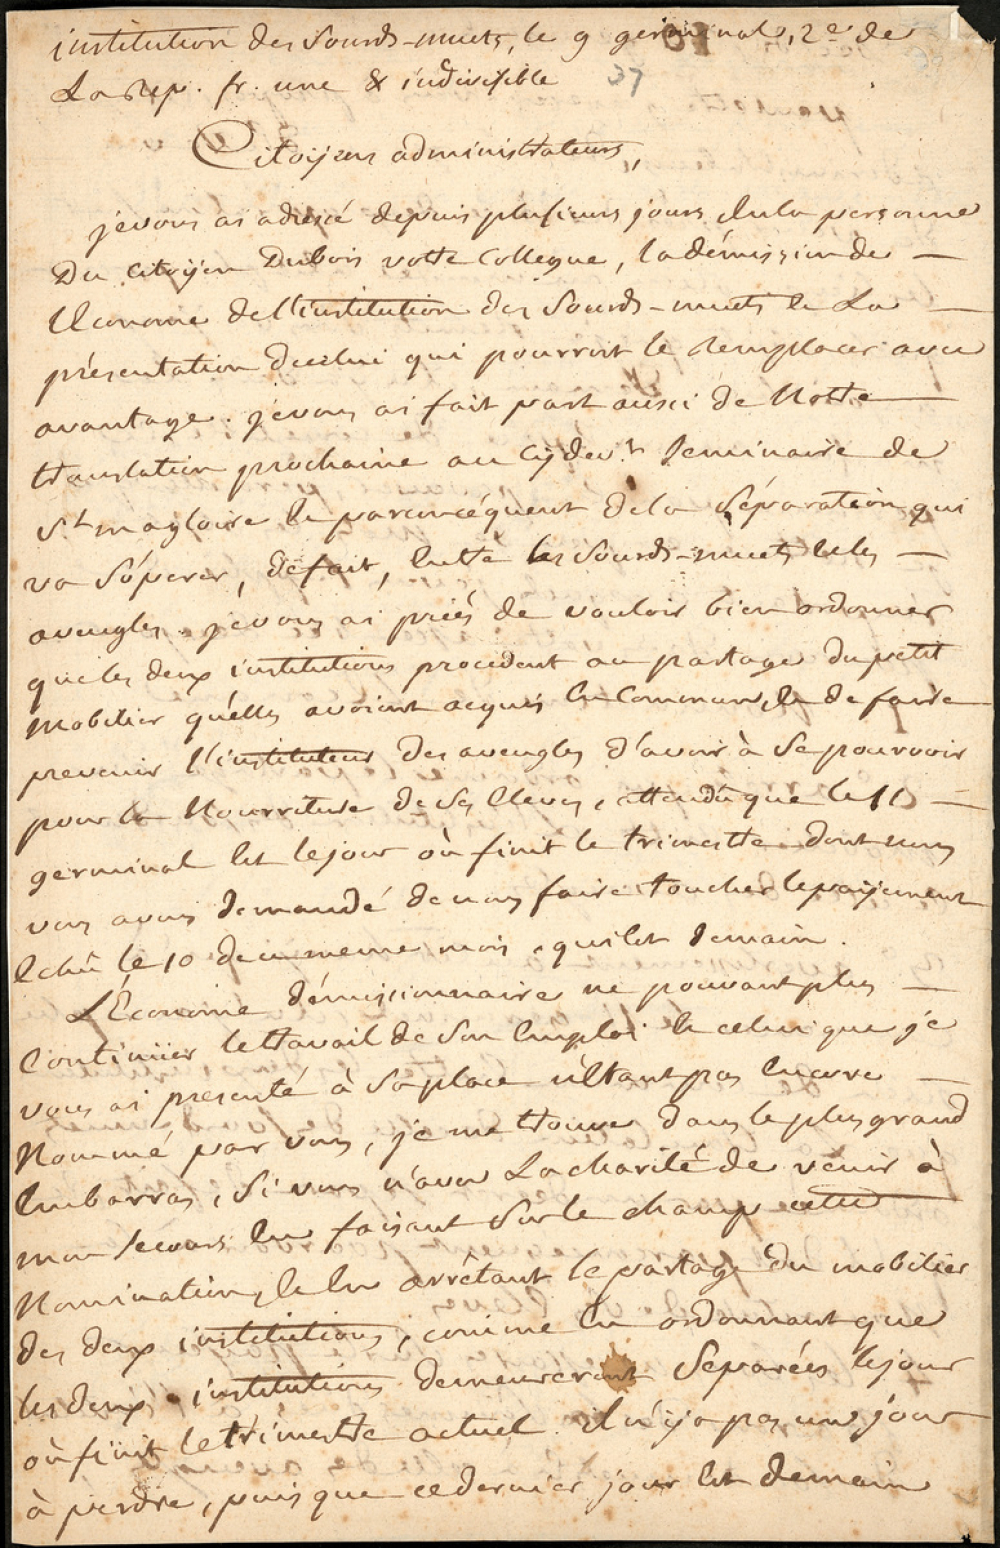 institution des Sourds-muets, le 9 germinal, 2e de
La Rep. fr. une & indivisible
37
Citoyens administrateurs,
je vous ai adressé depuis plusieurs jours, en la personne
Du citoyen Dubois votre Collegue, la démission de
l'Econome de l'institution des Sourds-muets et La
présentation de celui qui pourroit le remplacer avec
avantage. je vous ai fait part aussi de Notre
translation prochaine au cy devt. Seminaire de
St magloire et par conséquent de la Séparation qui
va s'opérer, de fait, entre les Sourds-muets et les
aveugles. je vous ai priés de vouloir bien ordonner
que les deux institutions procedent au partage du petit
Mobilier qu'elles avoient acquis en Commun, et de faire
prevenir l'instituteur des aveugles d'avoir à Se pourvoir
pour la Nourriture de Ses Eleves, attendu que le 10
germinal est le jour où finit le trimestre dont nous
vous avons demandé de nous faire toucher le paiyement
echû le 10 de ce meme mois, qui est demain.
L'Économe démissionnaire ne pouvant plus
Continuer le travail de Son Emploi et celui que je
vous ai presenté à Sa place n'étant pas encore
Nommé par vous, je me trouve dans le plus grand
Embarras, Si vous n'avez La charité de venir à
mon secours en faisant Sur le champ cette
Nomination, et en arrêtant le partage du mobilier
des deux institutions, comme en ordonnant que
les deux institutions demeureront Separées le jour
où finit le trimestre actuel. il n'y a pas un jour
à perdre, puisque ce dernier jour est demain